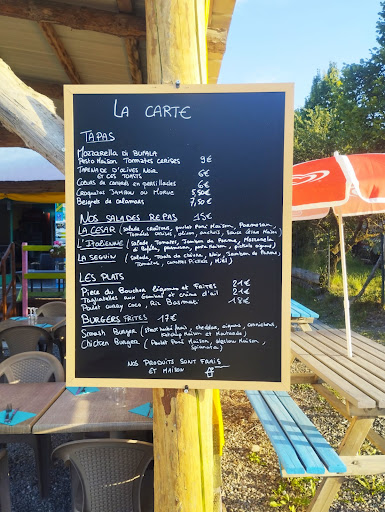 LA CARTE
TAPAS
Mozzarella di BUFALA
Pesto Maison Tomates cerises 9€
TAPENADE D'OLIVES Noire
ET SES TOASTS 6€
Coeurs de canards en persillades 6€
Croquetas JAMBON OU MORUE 5,50€
Beignets de calamars 7,50€
NOS SALADES REPAS 15€
LA CESAR (salade, croûtons, poulet pané Maison, Parmesan,
Tomates cerises, olives, anchois, sauce César Maison
L'ITALIENNE (salade, Tomates, Jambon de Parme, Mozzarella
di Bufala, parmesan, pesto Maison, pickels oignons)
LA SEGUIN (salade, Toasts de chèvre, Noix, Jambon de Parme,
Tomates, carottes Pickels, Miel)
LES PLATS
Pièce du Boucher Légumes et Frites 21€
Tagliatelles aux Gambas et crème d'ail 21€
Poulet curry coco et Riz Basmati 18€
BURGERS FRITES 17€
Smash Burger (Steak haché frais, cheddar, oignons, cornichons,
Ketchup Maison et Moutarde)
Chicken Burger (Poulet Pané Maison, oignons Maison,
NOS PRODUITS SONT FRAIS
ET MAISON